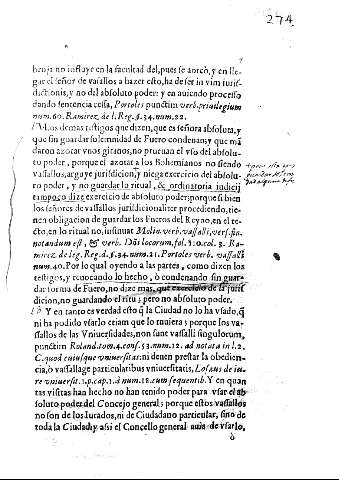 274
bruja no influye en la facultad del, pues se aorcò, y en lle-
gar el señor de vasallos a hazer esto, ha de ser in vim juris-
dictionis, y no del absoluto poder: y en auiendo processo
dando sentencia cessa, Portoles punctim verb. priuilegium
num. 60. Ramirez de l. Reg. §. 34. num. 22.
Los demas testigos que dizen, que es señora absoluta, y
que sin guardar solemnidad de Fuero condenan; y que ma
daron azotar vnos gitanos, no prueuan el vso del absolu-
to poder, porque el azotar a los Bohemianos no siendo
vassallos, arguye jurisdicion, y niega exercicio del absolu-
to poder, y no guardar la ritual, & ordinatoria iudicij
tampoco dize exercicio de absoluto poder; porque si bien
los señores de vassallos jurisdicionaliter procediendo, tie-
nen obligacion de guardar los Fueros del Reyno, en el re-
cto, en lo ritual no, insinuat Molin. verb. vassalli, vers. fin.
notandum est, & verb. Dñs locorum, fol. 110. col. 3. Ra-
mirez de leg. Reg. d. §. 34. num. 21. Portoles verb. vassalli
num. 40. Por lo qual oyendo a las partes, como dizen los
testigos, y reuocando lo hecho, ò condenando sin guar-
dar forma de Fuero, no dize mas, que exercicio de la juris
dicion, no guardando el ritu; pero no absoluto poder.
Y en tanto es verdad esto q̃ la Ciudad no lo ha vsado, q̃
ni ha podido vsarlo etiam que lo tuuiera; porque los vas-
sallos de las Vniuersidades, non sunt vassalli singulorum,
punctim Roland. tom. 4. cons. 53. num. 12. ad notata in l. 2.
C. quod cuiusque vniuersitat: ni deuen prestar la obedien-
cia, ò vassallage particularibus vniuersitatis, Losæus de iu-
re vniuersit. 1. p. cap. 1. à num. 18. cum sequentib. Y en quan
tas visitas han hecho no han tenido poder para vsar el ab
soluto poder del Concejo general; porque estos vassallos
no son de los Iurados, ni de Ciudadano particular, sino de
toda la Ciudad, y assi el Concello general auia de vsarlo,
ò